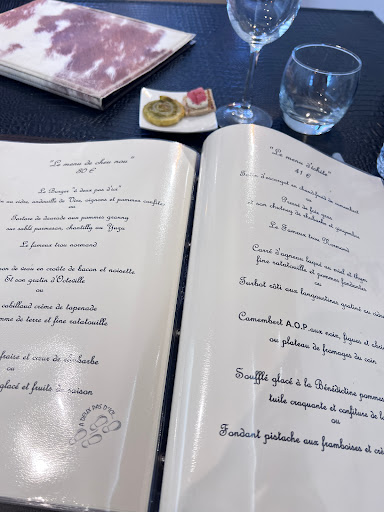 "Le menu de chez nous"
30 €
Le Burger "à deux pas d'ici"
au cidre, andouille de Vire, oignons et pommes confites
ou
Tartare de daurade aux pommes granny
sur sablé parmesan, chantilly au Yuzu
Le fameux trou normand
de veau en croûte de bacon et noisette
Et son gratin d'Octeville
ou
cabillaud crème de tapenade
de terre et fine ratatouille
fraise et cœur de rhubarbe
ou
glacé et fruits de saison
A DEUX PAS D'ICI
"Le menu d'exhale"
41 €
d'escargot en chaud-froid de camembert
ou
Pressé de foie gras
et son chutney de rhubarbe et gariguettes
Le Fameux trou Normand
Carré d'agneau laqué au miel et thym
fine ratatouille et pommes fondantes
ou
Turbot rôti aux langoustines gratiné au
Camembert A.O.P. aux noix, figues et
ou plateau de fromages du coin
Soufflé glacé à la Bénédictine pommes
tuile craquante et confiture de
ou
Fondant pistache aux framboises et